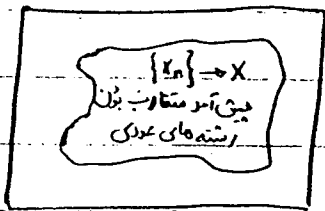 {Xn} → X
پیش آمد متقارب بودن
رشته های عددی